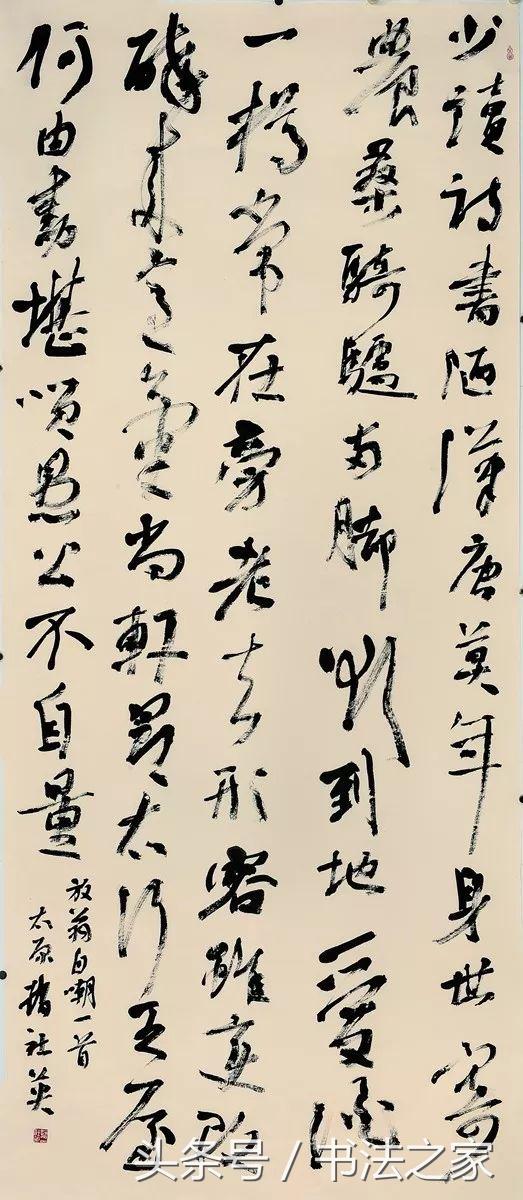 少讀詩書陋漢唐莫年身世寄
農桑騎驢兩脚欲到地愛酒
一樽常在旁老去形容雖變改
醉來意氣尚軒昂太行王屋
何由動堪笑愚公不自量
放翁自嘲一首
太原社英
头条号 / 书法之家